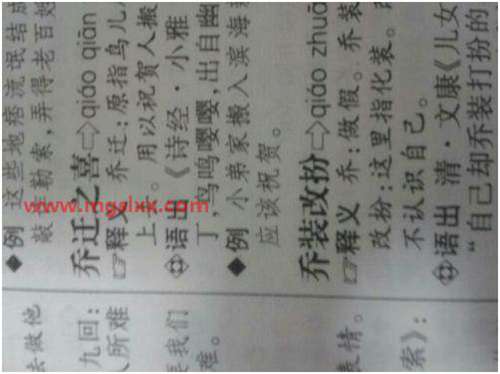 ◆例 这些地痞流氓结成
敲 勒索,弄得老百姓
乔迁之喜⇨qiáo qiān
☞释义 乔迁:原指鸟儿
上。用以祝贺人搬
语出 《诗经·小雅
丁,鸟鸣嘤嘤,出自幽
◆例 小弟家搬入滨海
应该祝贺。
乔装改扮⇨qiáo zhuā
☞释义 乔:做假。乔装
改扮:这里指化装。
不认识自己。
语出 清·文康《儿女
“自己却乔装打扮的
去做他
九回:
人所难
要我们
难。
表情。
索》:
www.mgslxx.com